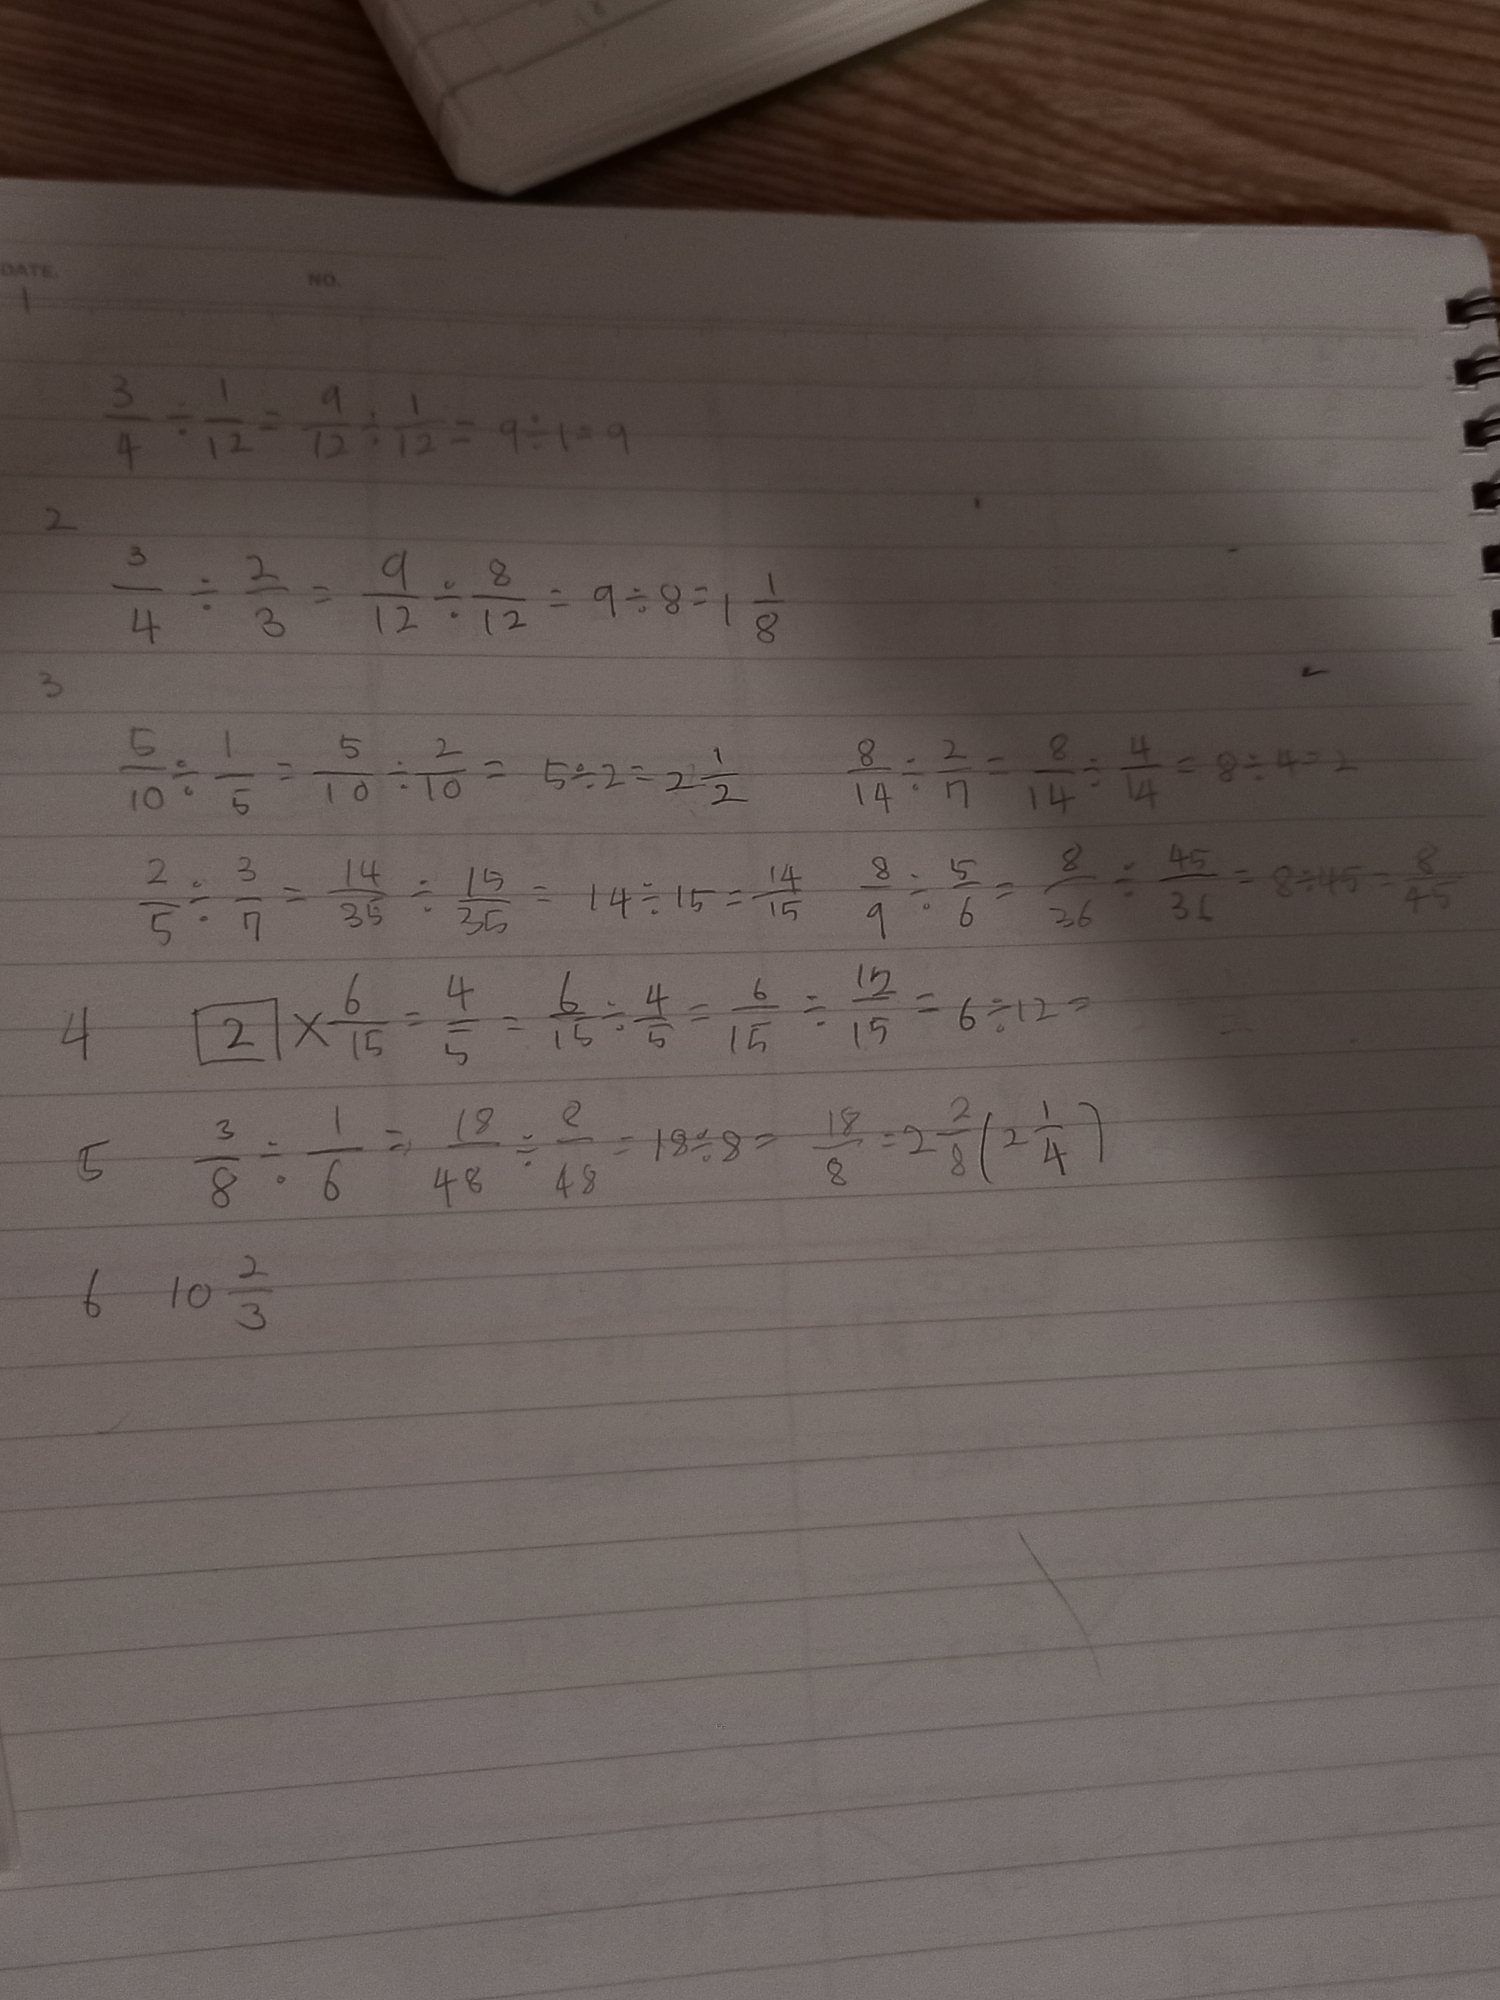 DATE. NO.
1
3/4 ÷ 1/12 = 9/12 ÷ 1/12 = 9÷1=9
2
3/4 ÷ 2/3 = 9/12 ÷ 8/12 = 9÷8=1 1/8
3
5/10 ÷ 1/5 = 5/10 ÷ 2/10 = 5÷2=2 1/2 8/14 ÷ 2/7 = 8/14 ÷ 4/14 = 8÷4=2
2/5 ÷ 3/7 = 14/35 ÷ 15/35 = 14÷15=14/15 8/9 ÷ 5/6 = 8/36 ÷ 45/36 = 8÷45=8/45
4 2 × 6/15 = 4/5 = 6/15 ÷ 4/5 = 6/15 ÷ 12/15 = 6÷12=
5 3/8 ÷ 1/6 = 18/48 ÷ 8/48 = 18÷8= 18/8 =2 2/8 (2 1/4)
6 10 2/3